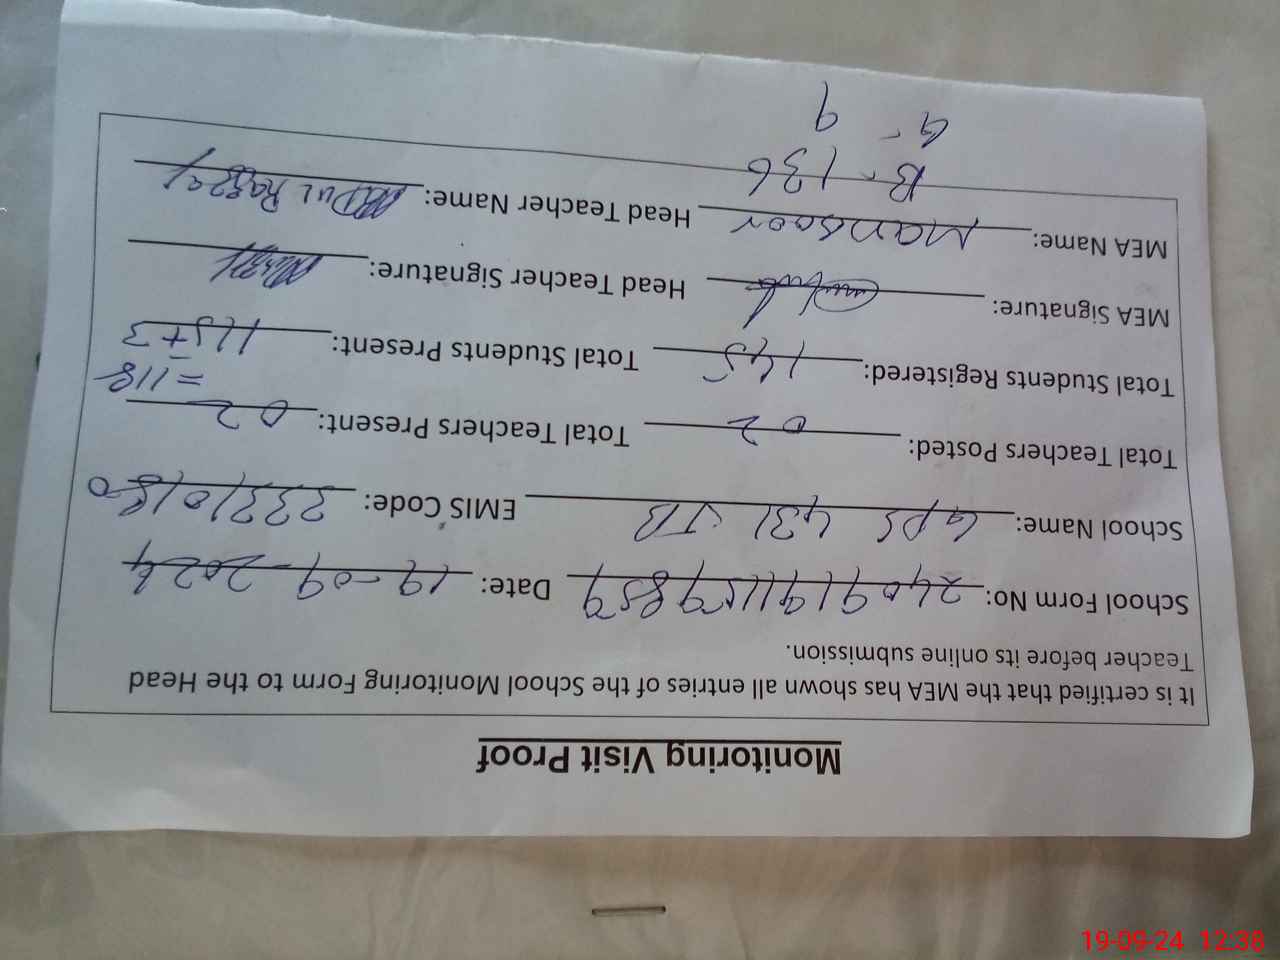 Monitoring Visit Proof
It is certified that the MEA has shown all entries of the School Monitoring Form to the Head
Teacher before its online submission.
School Form No: 2409191157859 Date: 19-09-2024
School Name: GPS 431 JB EMIS Code: 33310180
Total Teachers Posted: 02 Total Teachers Present: 02
Total Students Registered: 145 Total Students Present: 115+3
=118
MEA Signature: Head Teacher Signature:
MEA Name: Mansoor Head Teacher Name:
B- 136
G- 9
19-09-24 12:38